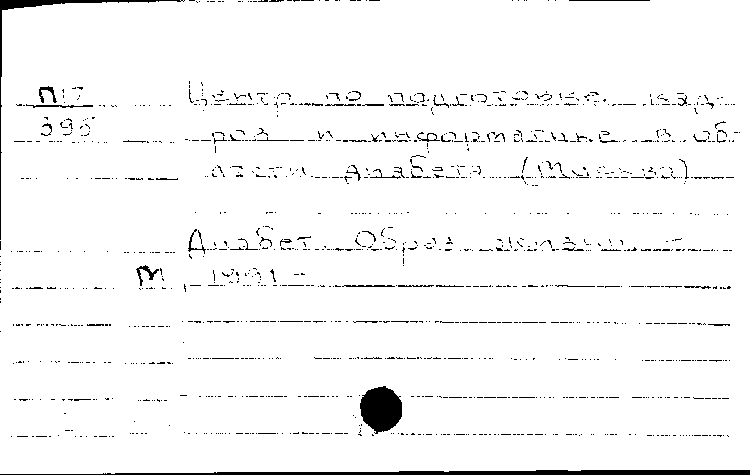 П17
395
Центр по подготовке кад-
ров и информатике в об-
ласти диабета (Москва)
Диабет. Образ жизни. -
М, 1991 -